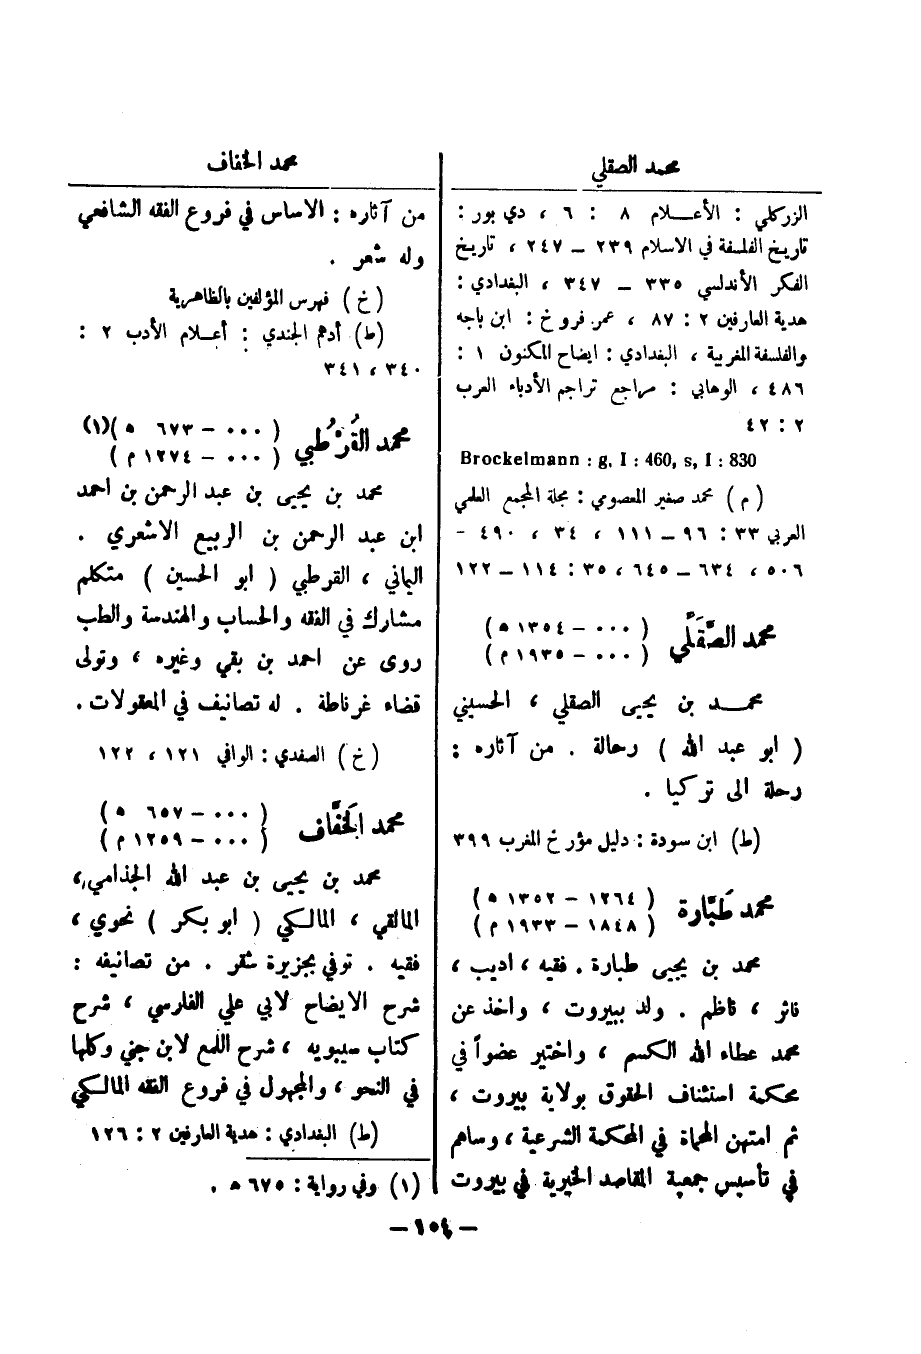 محمد الصقلي
الزركلي : الأعـــلام ٨ : ٦ ، دي بور :
تاريخ الفلسفة في الاسلام ٢٣٩ – ٢٤٧ ، تاريخ
الفكر الأندلسي ٣٣٥ – ٣٤٧ ، البغدادي :
هدية العارفين ٢ : ٨٧ ، عمر فروخ : ابن باجه
والفلسفة المغربية ، البغدادي : ايضاح المكنون ١ :
٤٨٦ ، الوهابي : مراجع تراجم الأدباء العرب
٢ : ٤٢
Brockelmann : g, I : 460, s, I : 830
( م ) محمد صغير المعصومي : مجلة المجمع العلمي
العربي ٣٣ : ٩٦ – ١١١ ، ٣٤ ، ٤٩٠ -
٥٠٦ ، ٦٣٤ – ٦٤٥ ، ٣٥ : ١١٤ – ١٢٢
محمد الصَّقَلِّي ( ٠٠٠ – ١٣٥٤ ه )
( ٠٠٠ – ١٩٣٥ م )
محمـــد بن يحيى الصقلي ، الحسيني
( ابو عبد الله ) رحالة . من آثاره :
رحلة الى تركيا .
(ط) ابن سودة : دليل مؤرخ المغرب ٣٩٩
محمد طَبَّارة ( ١٢٦٤ – ١٣٥٢ ه )
( ١٨٤٨ – ١٩٣٣ م )
محمد بن يحيى طبارة . فقيه ، اديب ،
ناثر ، ناظم . ولد ببيروت ، واخذ عن
محمد عطاء الله الكسم ، واختير عضواً في
محكمة استئناف الحقوق بولاية بيروت ،
ثم امتهن المحاماة في المحكمة الشرعية ، وساهم
في تأسيس جمعية المقاصد الخيرية في بيروت
محمد الخفاف
من آثاره : الاساس في فروع الفقه الشافعي
وله شعر .
( خ ) فهرس المؤلفين بالظاهرية
(ط) أدهم الجندي : أعـلام الأدب ٢ :
٣٤٠ ، ٣٤١
محمد القُرْطُبي ( ٠٠٠ – ٦٧٣ ه )(١)
( ٠٠٠ – ١٢٧٤ م )
محمد بن يحيى بن عبد الرحمن بن احمد
ابن عبد الرحمن بن الربيع الاشعري .
اليماني ، القرطبي ( ابو الحسين ) متكلم
مشارك في الفقه والحساب والهندسة والطب
روى عن احمد بن بقي وغيره ، وتولى
قضاء غرناطة . له تصانيف في المعقولات .
( خ ) الصفدي : الوافي ١٢١ ، ١٢٢
محمد الخَفَّاف ( ٠٠٠ – ٦٥٧ ه )
( ٠٠٠ – ١٢٥٩ م )
محمد بن يحيى بن عبد الله الجذامي ،
المالقي ، المالكي ( ابو بكر ) نحوي ،
فقيه . توفي بجزيرة شقر . من تصانيفه :
شرح الايضاح لابي علي الفارسي ، شرح
كتاب سيبويه ، شرح اللمع لابن جني وكلها
في النحو ، والمجهول في فروع الفقه المالكي
(ط) البغدادي : هدية العارفين ٢ : ١٢٦
(١) وفي رواية : ٦٧٥ ه .
– ١٠٤ –